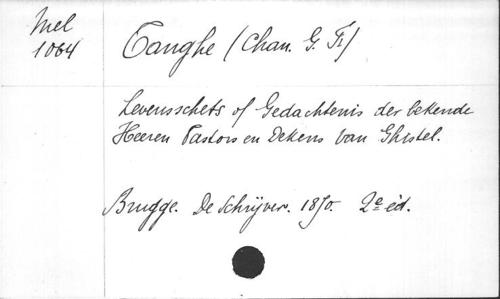 Mel
1064
Tanghe (Chan. G. Fr)
Levensschets of Gedachtenis der bekende
Heeren Pastors en Dekens van Ghistel.
Brugge. De Schrijver. 1870. 2e éd.